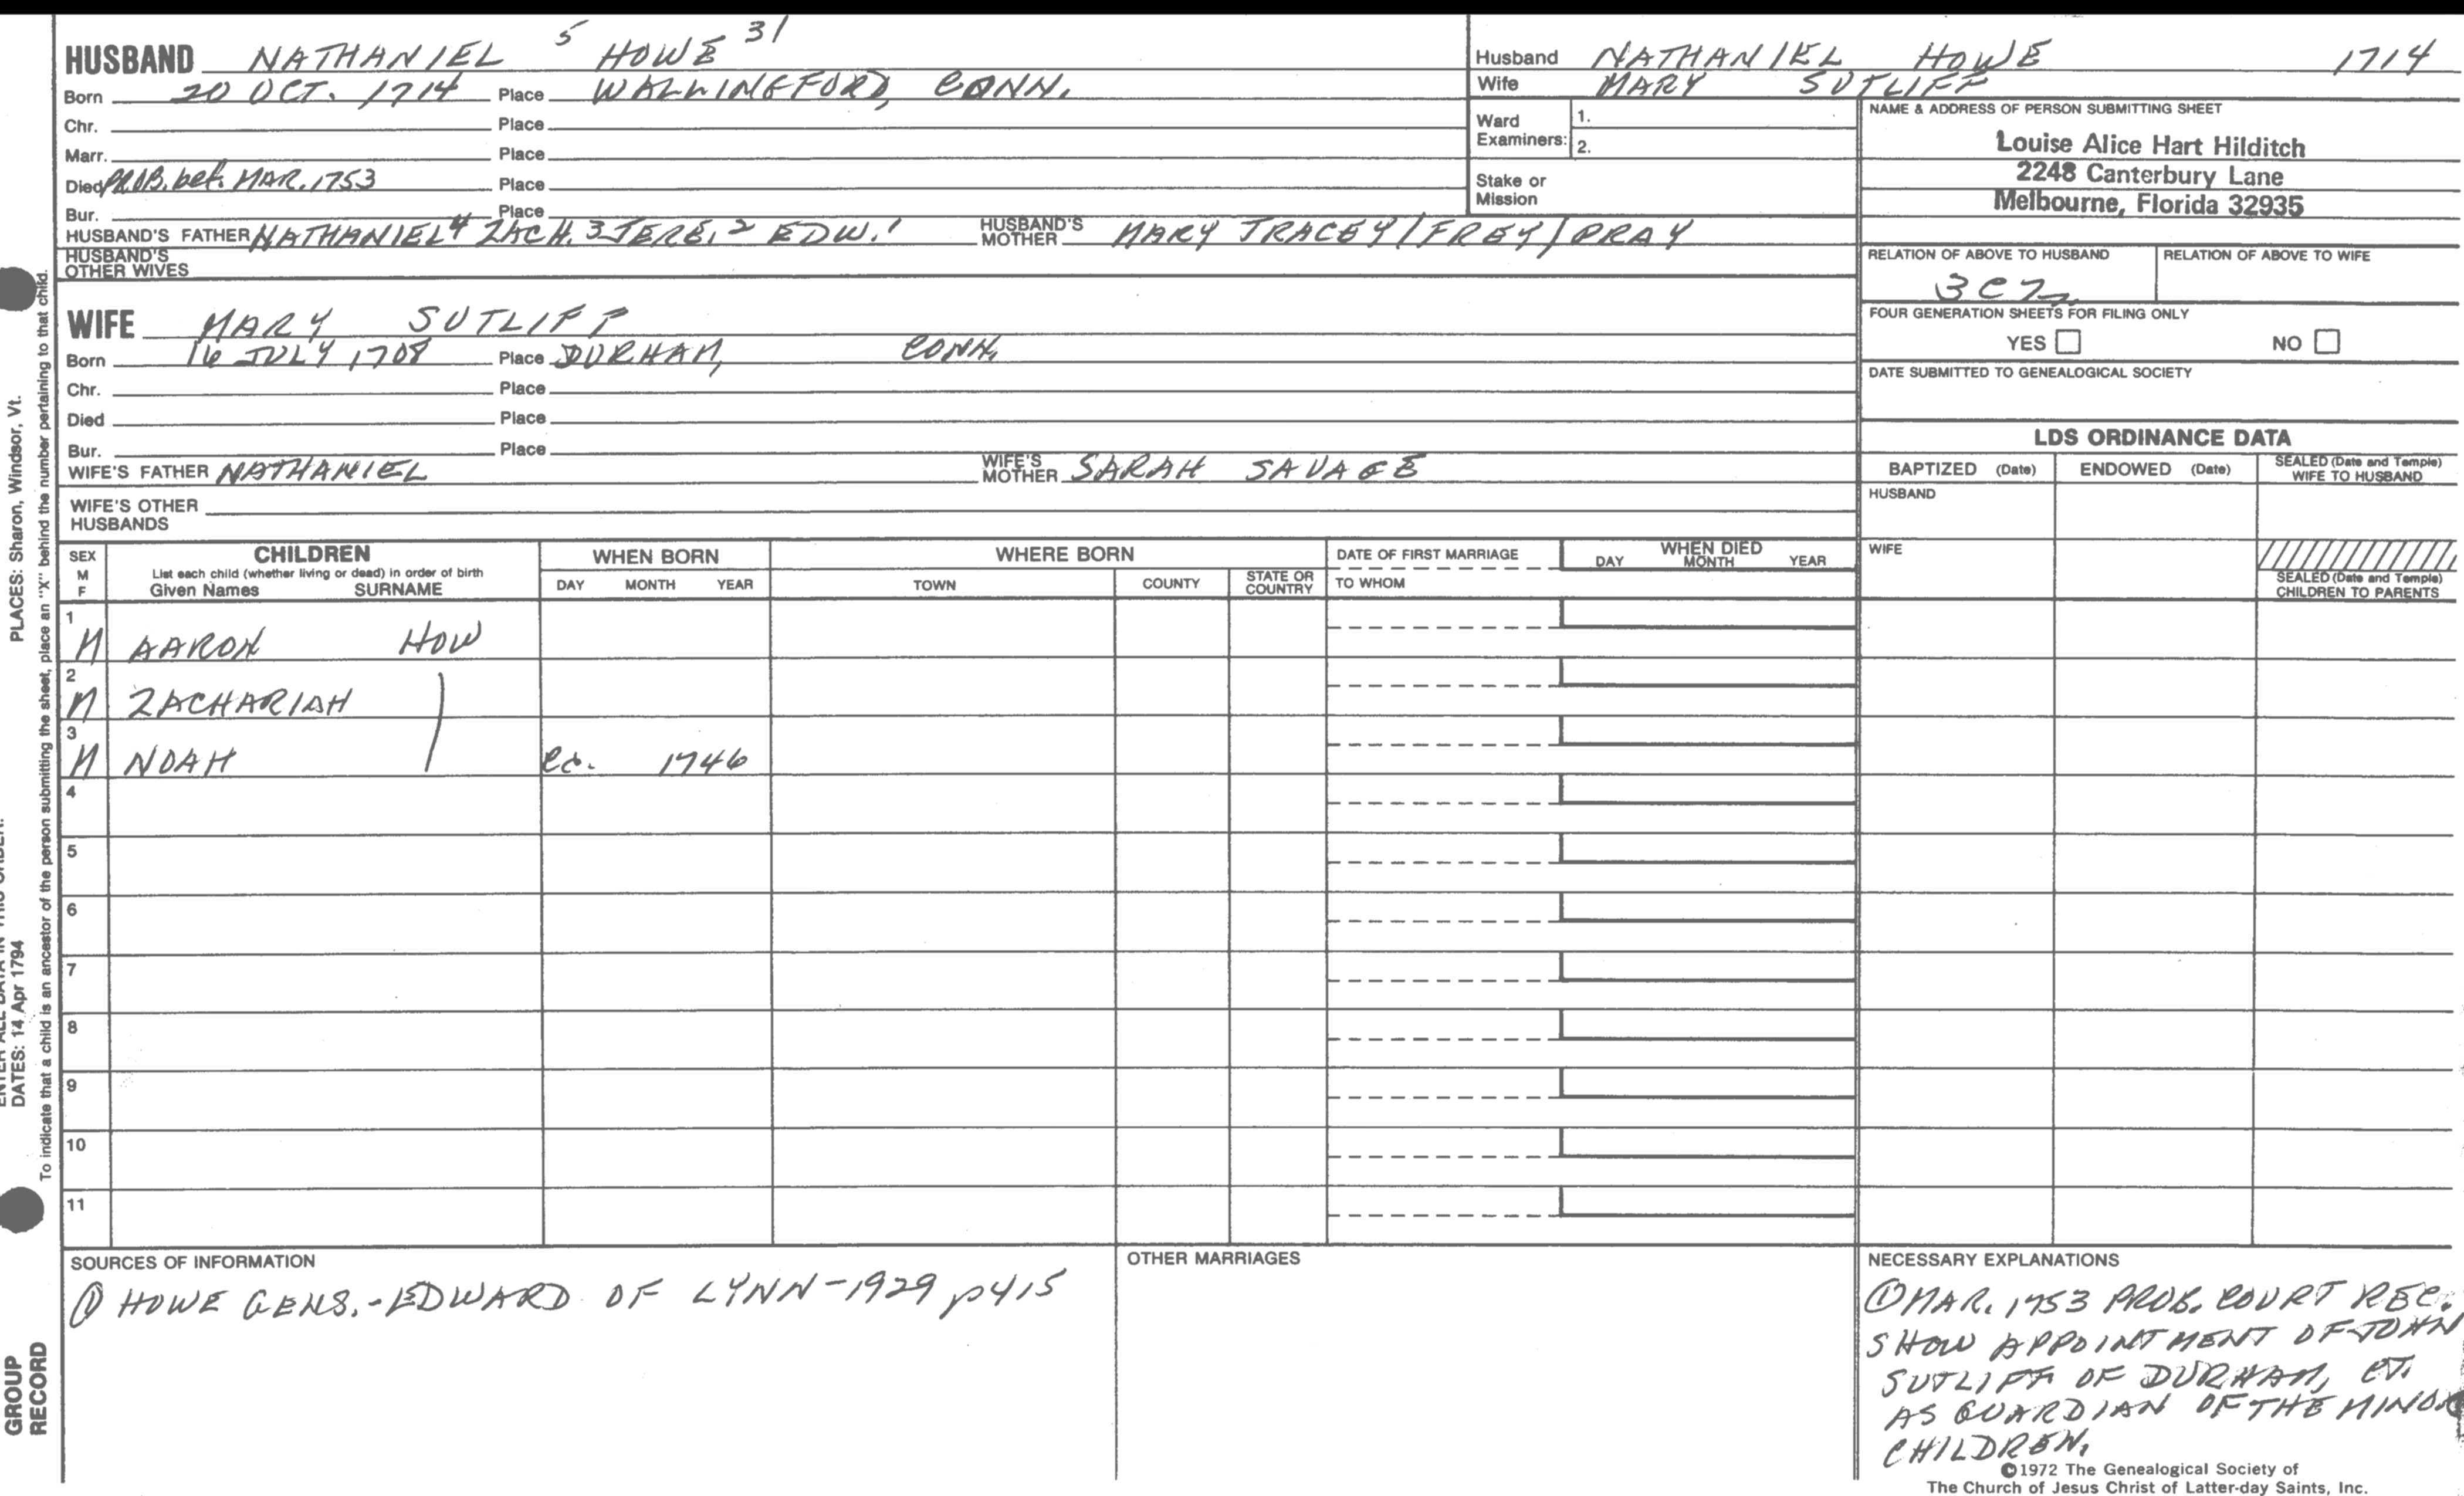 HUSBAND NATHANIEL 5 HOWE 31
Born 20 OCT. 1714 Place WALLINGFORD, CONN.
Chr. Place
Marr. Place
Died PROB. bef. MAR. 1753 Place
Bur. Place
HUSBAND'S FATHER NATHANIEL 4 ZACH. 3 JERE. 2 EDW. 1 HUSBAND'S MOTHER MARY TRACEY/FREY/PRAY
HUSBAND'S OTHER WIVES
Husband NATHANIEL HOWE 1714
Wife MARY SUTLIFF
Ward Examiners: 1.
2.
Stake or Mission
NAME & ADDRESS OF PERSON SUBMITTING SHEET
Louise Alice Hart Hilditch
2248 Canterbury Lane
Melbourne, Florida 32935
RELATION OF ABOVE TO HUSBAND RELATION OF ABOVE TO WIFE
FOUR GENERATION SHEETS FOR FILING ONLY
YES NO
DATE SUBMITTED TO GENEALOGICAL SOCIETY
WIFE MARY SUTLIFF
Born 16 JULY 1708 Place DURHAM, CONN.
Chr. Place
Died Place
Bur. Place
WIFE'S FATHER NATHANIEL WIFE'S MOTHER SARAH SAVAGE
WIFE'S OTHER HUSBANDS
LDS ORDINANCE DATA
BAPTIZED (Date) ENDOWED (Date) SEALED (Date and Temple) WIFE TO HUSBAND
HUSBAND
WIFE
SEALED (Date and Temple) CHILDREN TO PARENTS
SEX M F CHILDREN WHEN BORN WHERE BORN DATE OF FIRST MARRIAGE WHEN DIED
List each child (whether living or dead) in order of birth
Given Names SURNAME DAY MONTH YEAR TOWN COUNTY STATE OR COUNTRY TO WHOM DAY MONTH YEAR
1 M AARON HOW
2 M ZACHARIAH
3 M NOAH ca. 1746
4
5
6
7
8
9
10
11
SOURCES OF INFORMATION
① HOWE GENS. - EDWARD OF LYNN - 1929 p415
OTHER MARRIAGES
NECESSARY EXPLANATIONS
① MAR. 1753 PROB. COURT REC.
SHOW APPOINTMENT OF JOHN
SUTLIFF OF DURHAM, CT.
AS GUARDIAN OF THE MINOR
CHILDREN.
©1972 The Genealogical Society of
The Church of Jesus Christ of Latter-day Saints, Inc.
PLACES: Sharon, Windsor, Vt.
DATES: 14 Apr 1794
To indicate that a child is an ancestor of the person submitting the sheet, place an "X" behind the number pertaining to that child.
GROUP
RECORD